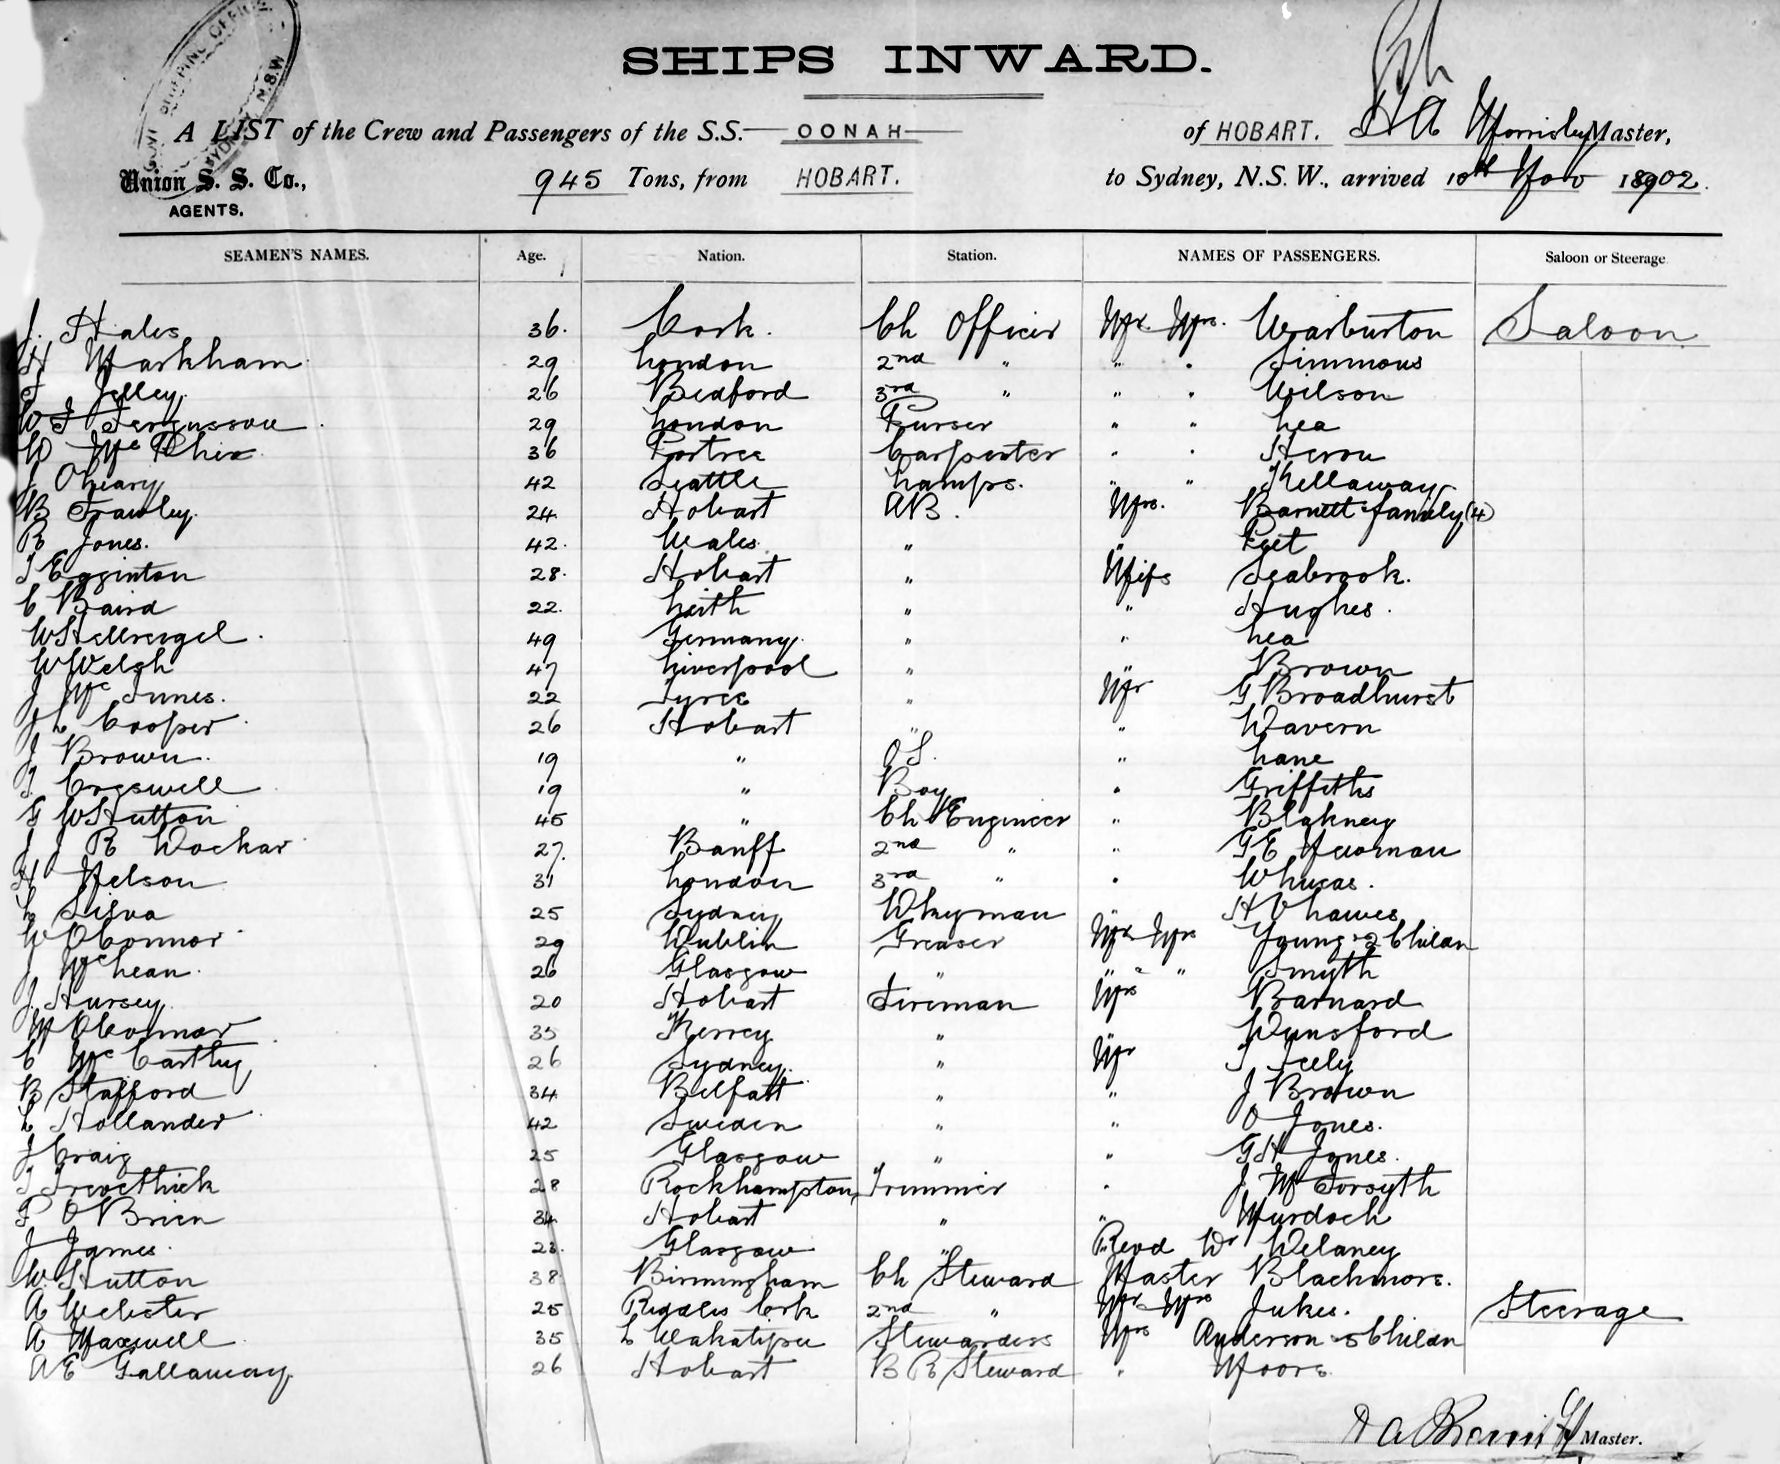 SHIPS INWARD.
A LIST of the Crew and Passengers of the S.S. OONAH of HOBART. Master,
Union S. S. Co., 945 Tons, from HOBART. to Sydney, N.S.W., arrived 10th Nov 1902.
AGENTS.
SEAMEN'S NAMES. Age. Nation. Station. NAMES OF PASSENGERS. Saloon or Steerage
J. Hales 36. Cork. Ch Officer Mr Mrs. Warburton Saloon
H Markham 29 London 2nd " " " Simmons
Jelley 26 Bedford 3rd " " " Wilson
W J Fergusson 29 London Purser " " Lea
Mc Phie 36 Portree Carpenter " " Heron
J O'Leary 42 Seattle Lamps. " " Kellaway
B Frawley 24 Hobart AB. Mrs. Barnett family (4)
R Jones. 42. Wales " "
T Egginton 28. Hobart " Miss Seabrook.
C Baird 22. Leith " " Hughes.
49 Germany. " " Lea
W Welsh 47 Liverpool " Brown
J McInnes. 22 Tyree " Mr G Broadhurst
J L Cooper 26 Hobart " " Wavern
J Brown. 19 " O S. " Lane
T Creswell 19 " Boy " Griffiths
G W Hutton 45 " Ch Engineer " Blakney
J J R Dockar 27. Banff 2nd " " G E Newman
H Nelson 31 London 3rd " " W Lucas.
L Silva 25 Sydney Wkeyman " H C Lawes
W O'Connor 29 Dublin Greaser Mr Mrs Young & 2 Children
J McLean. 26 Glasgow " " " Smyth
J. Hursey. 20 Hobart Fireman Mrs Barnard
M O'Connor 35 Kerrey " Dunsford
C McCarthy 26 Sydney. " Mr T Seely
B Stafford 34 Belfast " " J Brown
L Hollander 42 Sweden " " O Jones.
J Craig 25 Glasgow " " G H Jones.
T Trevethick 28 Rockhampton Trimmer " J M Forsyth
P O'Brien 34 Hobart " " Murdoch
J James. 23. Glasgow " Revd Delaney
W. Hutton 38 Birmingham Ch Steward Master Blackmore.
A Webster 25 Cork 2nd " Mr Mrs Jukes. Steerage
A Maxwell 35 L Wakatipu Stewardess Mrs Anderson & 5 Children
A E Gallaway 26 Hobart B R Steward " Moore
Master.